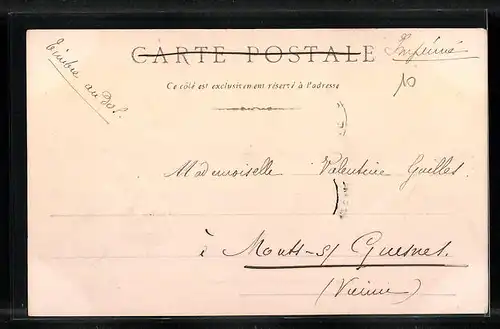 Timbre au dos.
CARTE POSTALE
Imprimé
10
Ce côté est exclusivement réservé à l'adresse
Mademoiselle Valentine Guilles.
à Monts-s/ Guesnes.
(Vienne)